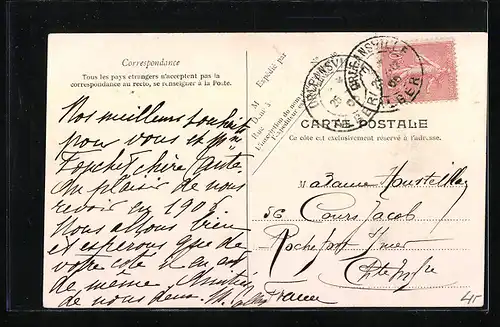 Correspondance
Tous les pays étrangers n'acceptent pas la
correspondance au recto, se renseigner à la Poste.
Expédié par
M
D
Rue
CARTE POSTALE
Ce côté est exclusivement réservé à l'adresse.
ORLÉANSVILLE
ALGER
ORLÉANSVILLE
ALGER
Nos meilleurs souhaits
pour vous et Mme
chère tante
Au plaisir de nous
revoir en 1906
Nous allons bien
et espérons que de
votre côté il en est
de même. Amitiés
de nous deux.
Madame
56 Cours Jacob
Rochefort S/mer
Chte Infre
France
45